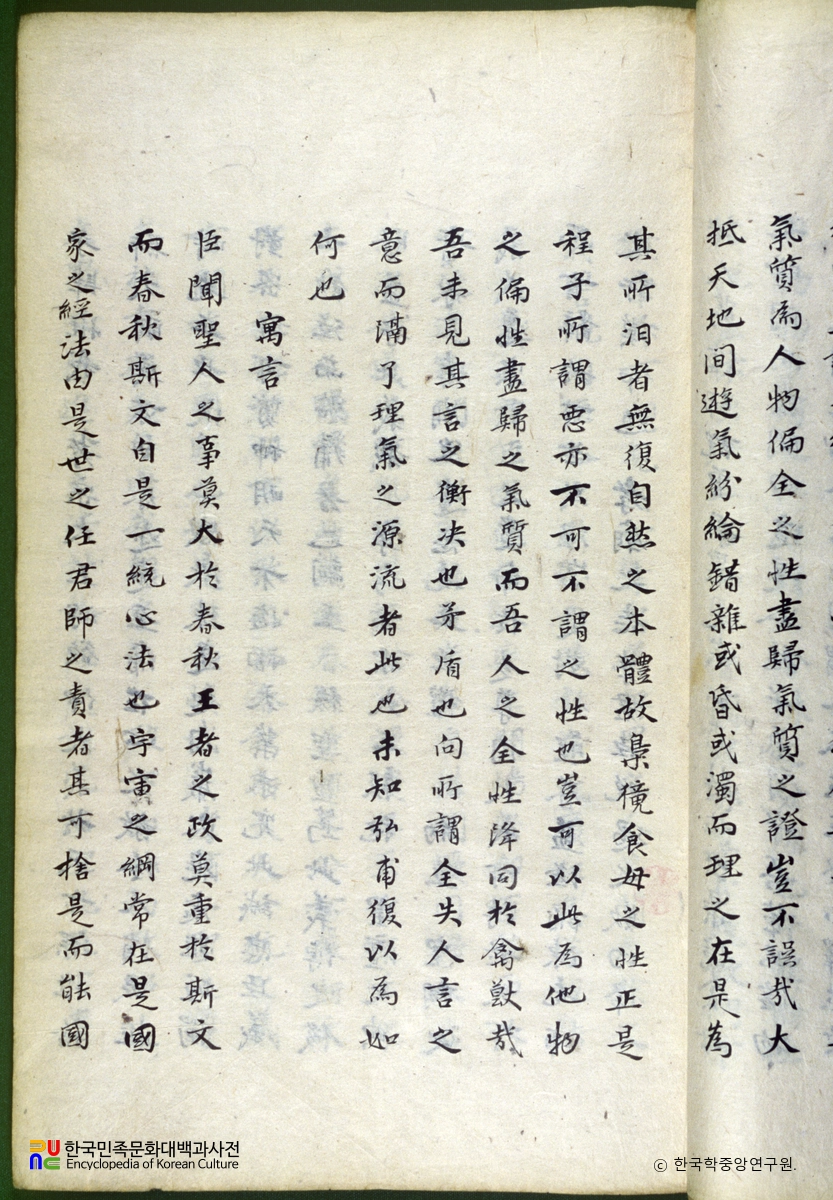 氣質爲人物偏全之性盡歸氣質之證豈不誤哉大
抵天地間遊氣紛綸錯雜或昏或濁而理之在是爲
其所汨者無復自然之本體故梟獍食母之性正是
程子所謂惡亦不可不謂之性也豈可以此爲他物
之偏性盡歸之氣質而吾人之全性降同於禽獸哉
吾未見其言之衡决也矛盾也向所謂全失人言之
意而滿了理氣之源流者此也未知弘甫復以爲如
何也
寓言
臣聞聖人之事莫大於春秋王者之政莫重於斯文
而春秋斯文自是一統心法也宇宙之綱常在是國
家之經法由是世之任君師之責者其可捨是而能國
한국민족문화대백과사전
Encyclopedia of Korean Culture
ⓒ 한국학중앙연구원.